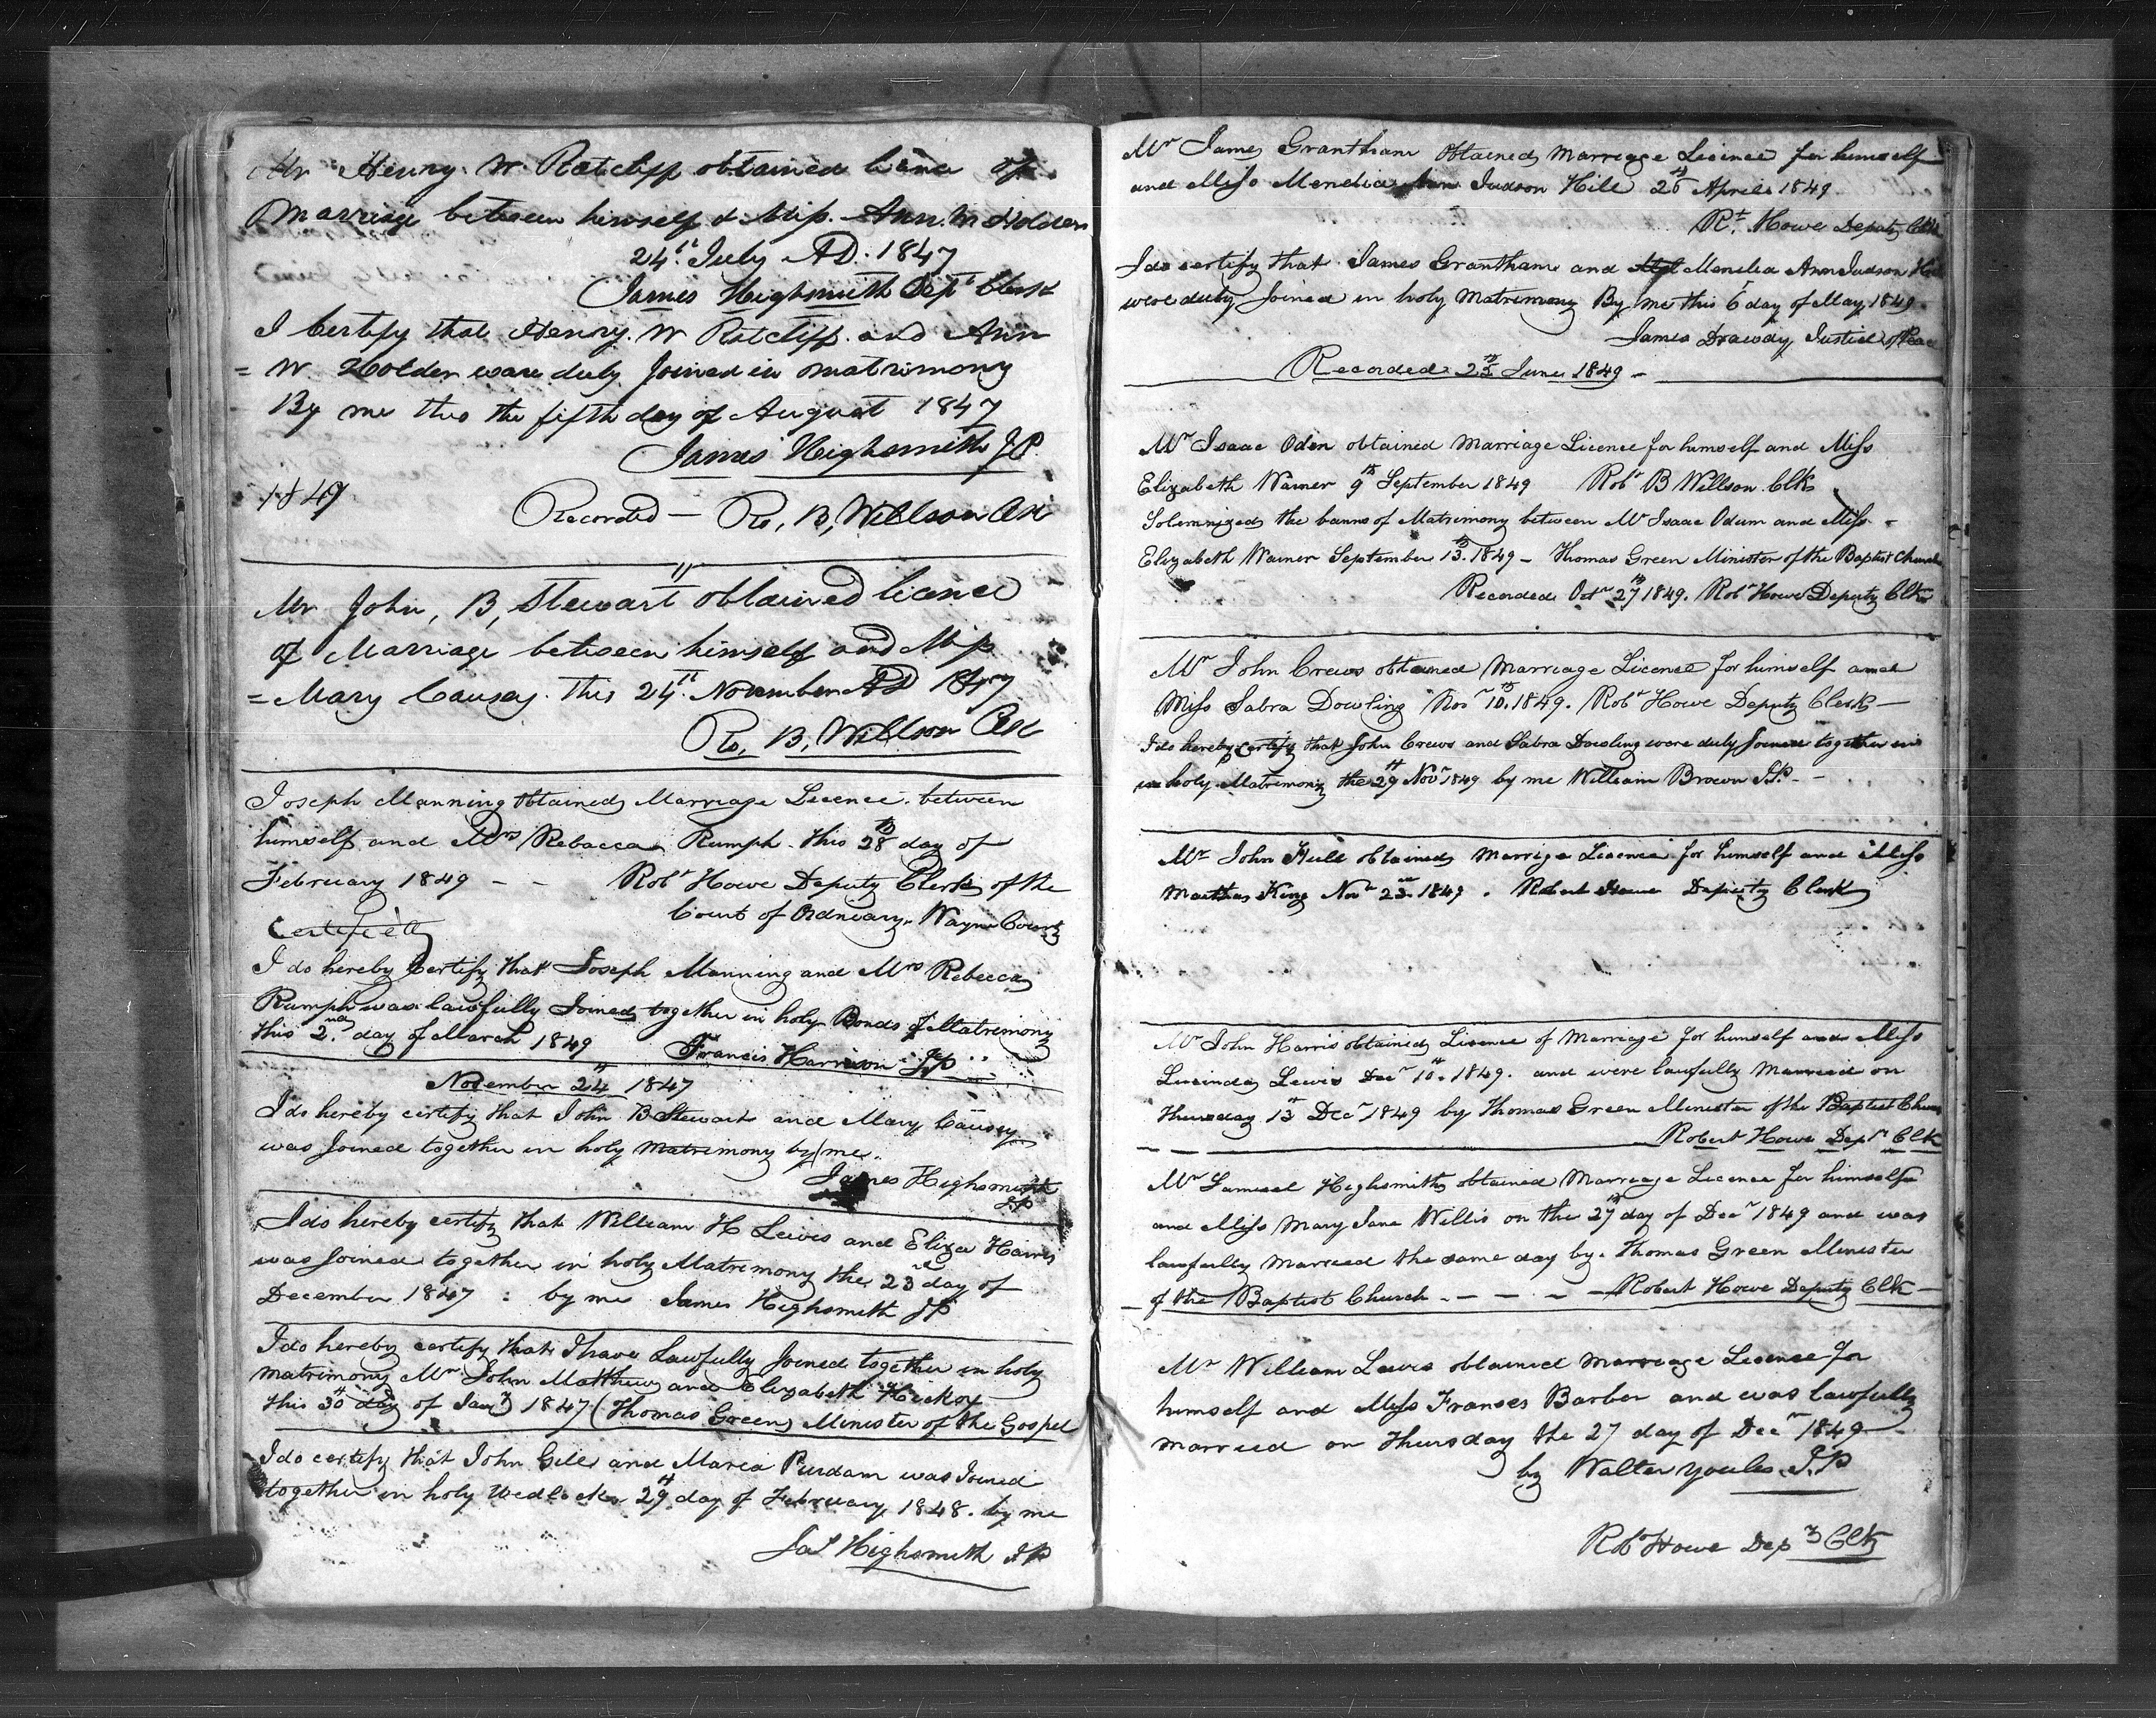 Mr Henry W Ratcliff obtained licence of
Marriage between himself & Miss Ann W Holder
24th July AD. 1847
James Highsmith Dept Clerk
I Certify that Henry W Ratcliff and Ann
= W Holder ware duly Joined in matrimony
By me this the fifth day of August 1847
James Highsmith JP.
1847
Recorded — Ro, B, Willson Clk
Mr John, B, Stewart obtained licence
of Marriage between himself and Miss
= Mary Causey. This 24th November AD 1847
Ro, B, Willson Clk
Joseph Manning Obtained Marriage Licence between
himself and Mrs Rebacca Rumph this 28th day of
February 1849 - - Robt Howe Deputy Clerk of the
Court of Ordinary, Wayne County
I do hereby Certify that Joseph Manning and Mrs Rebecca
Rumph was lawfully Joined together in holy Bonds of Matrimony
this 2nd day of March 1849 Francis Harrison JP
November 24th 1847
I do hereby certify that John B Stewart and Mary Causey
was Joined together in holy Matrimony by me.
James Highsmith
JP
I do hereby certify that William H Lewis and Eliza Harris
was Joined together in holy Matrimony the 23rd day of
December 1847 : by me James Highsmith JP
I do hereby certify that I have Lawfully Joined together in holy
matrimony Mr John Matthews and Elizabeth Hickox
this 30th day of Jany 1847 (Thomas Green) Minister of the Gospel
I do certify that John Gill and Maria Purdam was Joined
together in holy Wedlock 29th day of February 1848. by me
Jas Highsmith JP
Mr James Grantham Obtained Marriage Licence for himself
and Miss Mendia Ann Judson Hill 26th April 1849
Rt. Howe Deputy Clk
I do certify that James Grantham and Mendia Ann Judson Hill
were duly Joined in holy Matrimony By me this 6th day of May 1849.
James Drawdy Justice of Peace
Recorded 25th June 1849 -
Mr Isaac Oden obtained Marriage Licence for himself and Miss
Elizabeth Warner 9th September 1849 Robt B Willson Clk
Solemnized the banns of Matrimony between Mr Isaac Odum and Miss
Elizabeth Warner September 13th 1849 - Thomas Green Minister of the Baptist Church
Recorded Octr 27th 1849. Robt Howe Deputy Clk
Mr John Crews obtained Marriage Licence for himself and
Miss Sabra Dowling Novr 10th 1849. Robt Howe Deputy Clerk —
I do hereby certify that John Crews and Sabra Dowling were duly Joined together in
in holy Matrimony the 29th Novr 1849 by me William Brown J.P. -
Mr John Hull obtained Marrige Licence for himself and Miss
Marthas King Novr 23rd 1849. Robert Howe Deputy Clerk
Mr John Harris obtained Licence of Marriage for himself and Miss
Lucinda Lewis Decr 10th 1849. and were lawfully Married on
Thursday 13th Decr 1849 by Thomas Green Minister of the Baptist Church
Robert Howe Depy Clk
Mr Samuel Highsmith obtained Marriage Licence for himself
and Miss Mary Jane Willis on the 27th day of Decr 1849 and was
lawfully Married the same day by Thomas Green Minister
of the Baptist Church - - - - Robert Howe Deputy Clk -
Mr William Lewis obtained Marriage Licence for
himself and Miss Franses Barber and was lawfully
married on Thursday the 27 day of Decr 1849
by Walter Youles J.P
Robt Howe Depy Clk